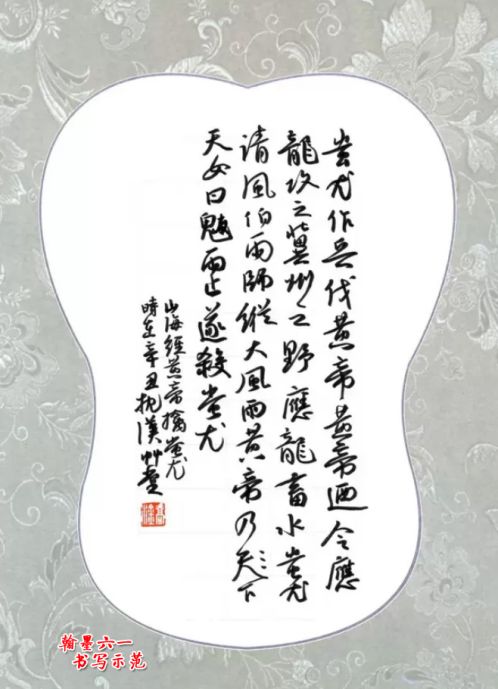 蚩尤作兵伐黄帝黄帝迺令應
龍攻之冀州之野應龍畜水蚩尤
請風伯雨師縱大風雨黄帝乃天下
天女曰魃雨止遂殺蚩尤
山海經黄帝擒蚩尤
時在辛丑漢艸堂
翰墨六一
书写示范